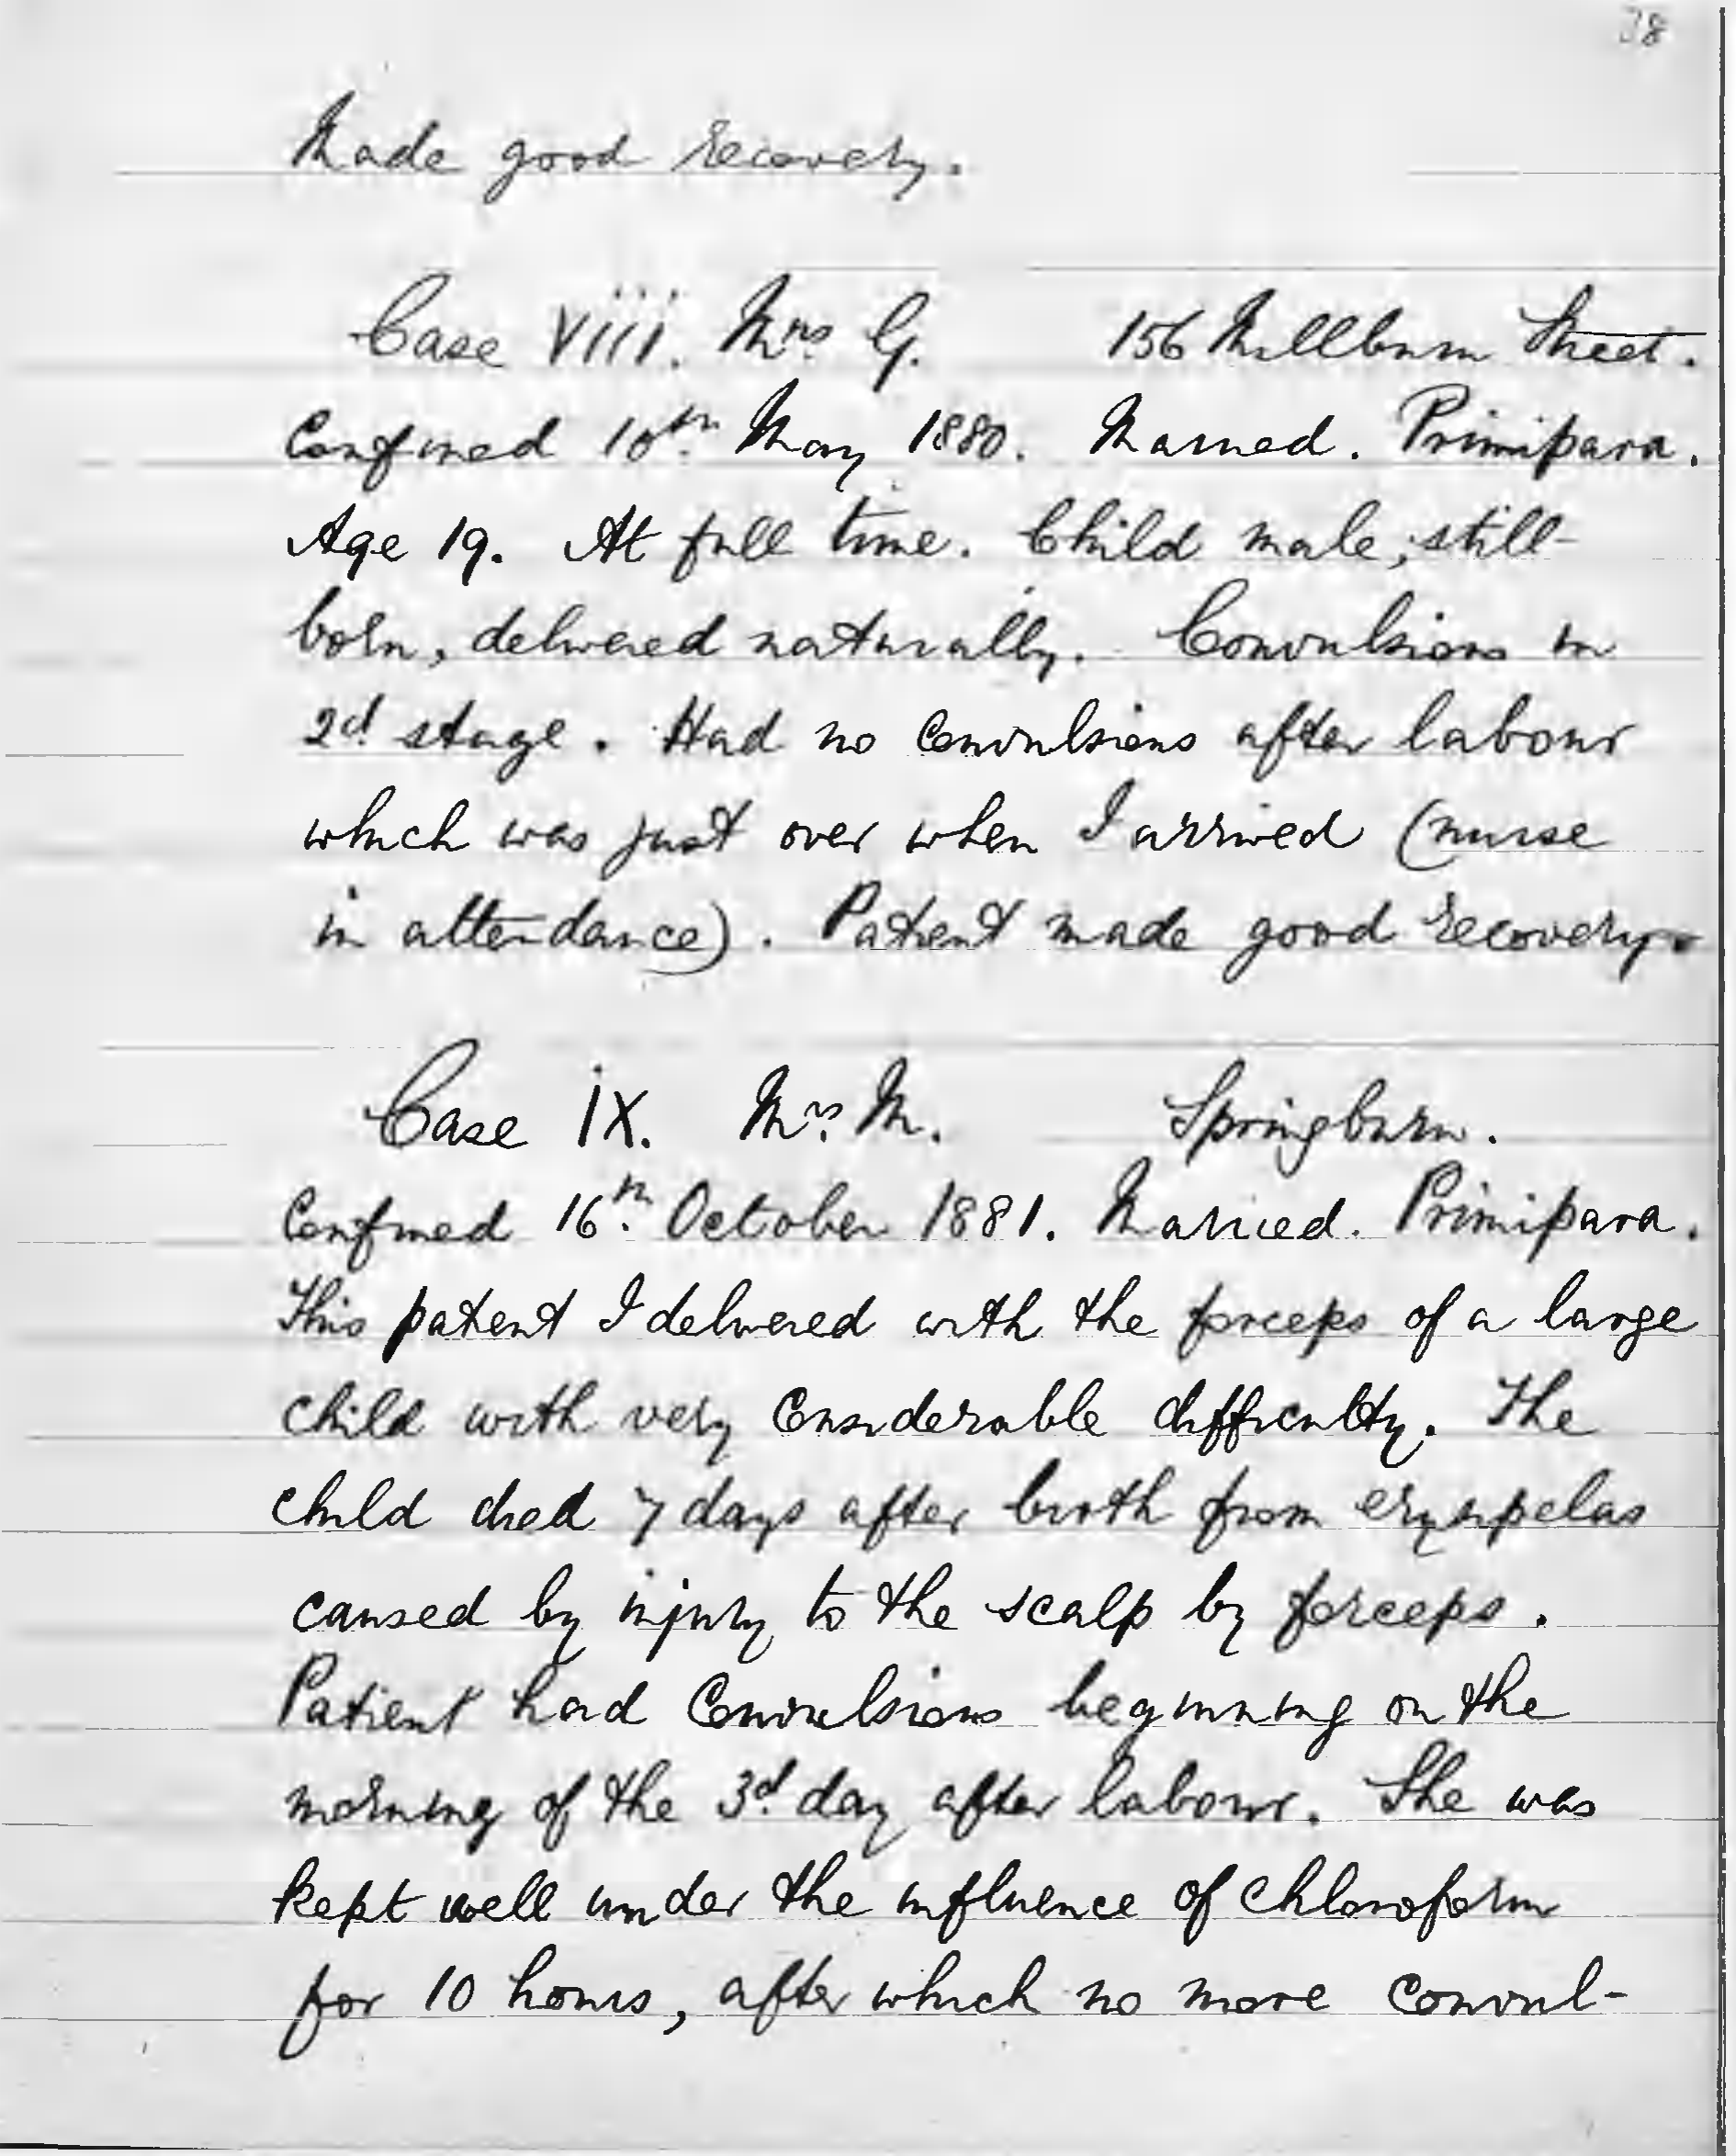 38
Made good recovery.
Case viii. Mrs. G. 156 Millburn Street.
Confined 10th May 1880. Married. Primipara.
Age 19. At full time. Child male, still-
born, delivered naturally. Convulsions in
2d. stage. Had no convulsions after labour
which was just over when I arrived (nurse
in attendance). Patient made good recovery.
Case ix. Mrs. M. Springburn.
Confined 16th October 1881. Married. Primipara.
This patient I delivered with the forceps of a large
child with very considerable difficulty. The
child died 7 days after birth from erysipelas
caused by injury to the scalp by forceps.
Patient had convulsions beginning on the
morning of the 3d. day after labour. She was
kept well under the influence of chloroform
for 10 hours, after which no more convul-